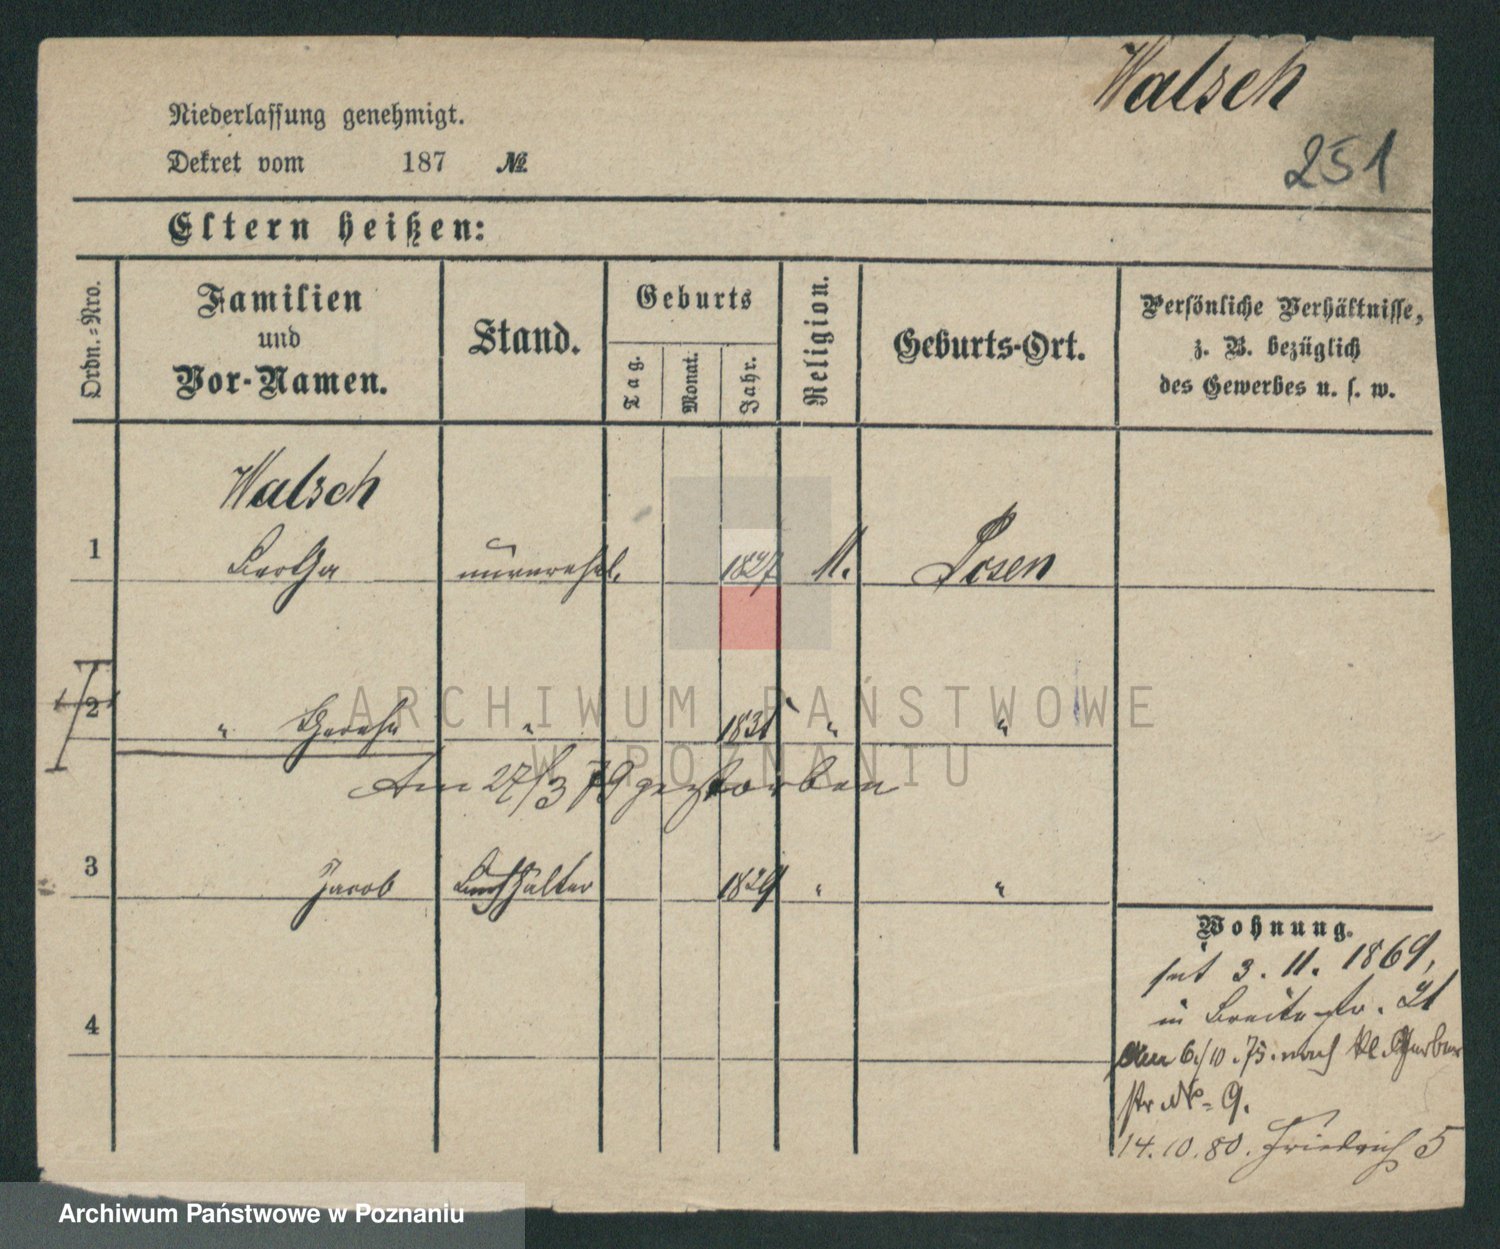 Walsch
251
Niederlassung genehmigt.
Dekret vom 187 №
Eltern heißen:
Ordn.-Nro.
Familien
und
Vor-Namen.
Stand.
Geburts
Tag.
Monat.
Jahr.
Religion.
Geburts-Ort.
Persönliche Verhältnisse,
z. B. bezüglich
des Gewerbes u. s. w.
Walsch
1 Bertha unverehel. 1827 M. Posen
2 " " 1831 " "
Am 27/3 79 gestorben
3 Jacob Buchhalter 1829 " "
4
Wohnung.
seit 3. 11. 1869,
in Breitestr. 21
Am 6./10. 75. nach kl. Gerber
str. No. 9.
14. 10. 80. Friedrich 5
ARCHIWUM PAŃSTWOWE
W POZNANIU
Archiwum Państwowe w Poznaniu